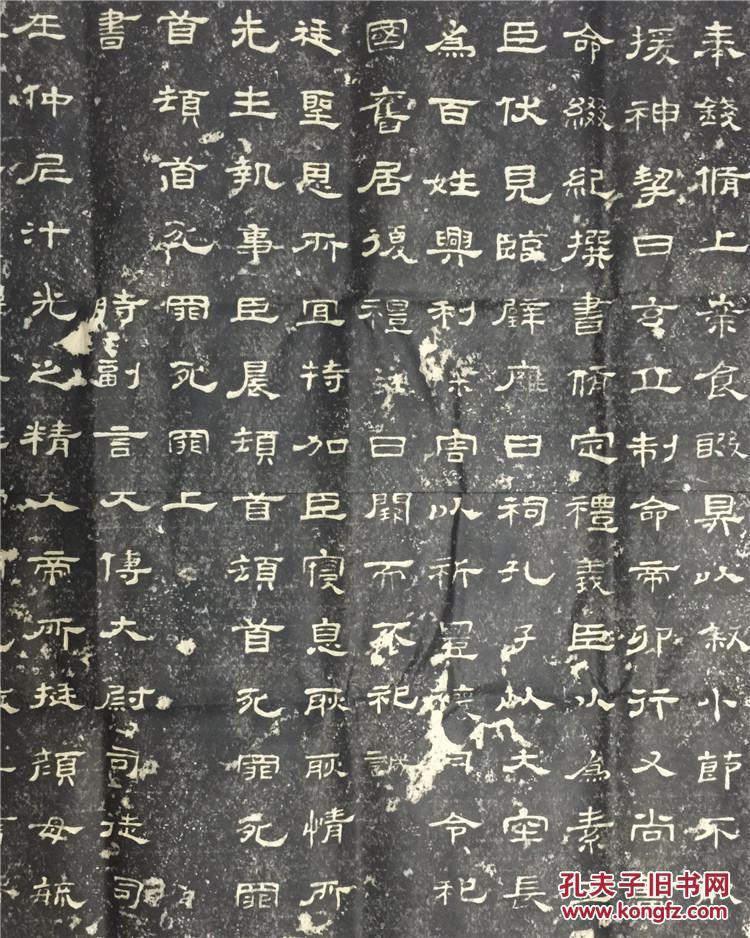 奉錢脩上案食醊具以叙小節不
援神挈曰玄丘制命帝卯行又尚
命綴紀撰書脩定禮義臣以為素
臣伏見臨璧雍日祠孔子以大牢長
為百姓興利除害以祈豐穰月令祀
國舊居復禮之日闕而不祀誠
廷聖恩所宜特加臣寑息耿耿情所
先生執事臣晨頓首頓首死罪死罪
首頓首死罪死罪上
書 時副言大傅大尉司徒司
在仲尼汁光之精大帝所挺顏母毓
孔夫子旧书网
www.kongfz.com